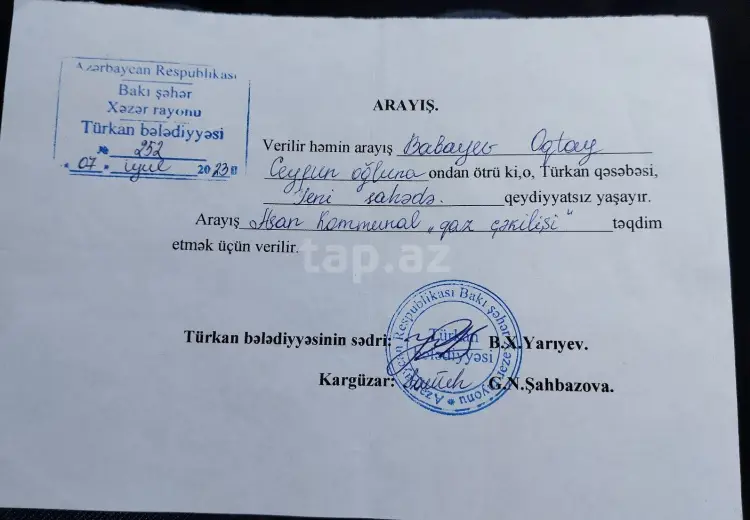 Azərbaycan Respublikası
Bakı şəhər
Xəzər rayonu
Türkan bələdiyyəsi
№ 252
"07" iyul 2023
ARAYIŞ.
Verilir həmin arayış Babayev Oqtay
Ceyhun oğluna ondan ötrü ki,o, Türkan qəsəbəsi,
Yeni sahədə. qeydiyyatsız yaşayır.
Arayış Asan Kommunal „qaz çəkilişi“ təqdim
etmək üçün verilir.
tap.az
Türkan bələdiyyəsinin sədri: B.X.Yarıyev.
Kargüzar: G.N.Şahbazova.
Azərbaycan Respublikası Bakı şəhəri Xəzər rayonu
Türkan
bələdiyyəsi